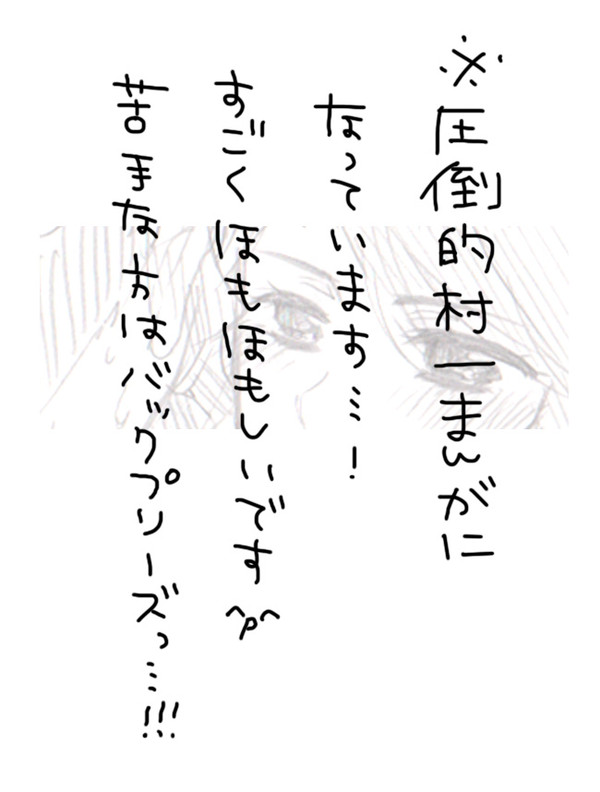 ※圧倒的村一まんがに
なっています…!
すごくほもほもしいです^p^
苦手な方はバックプリーズっ…!!!